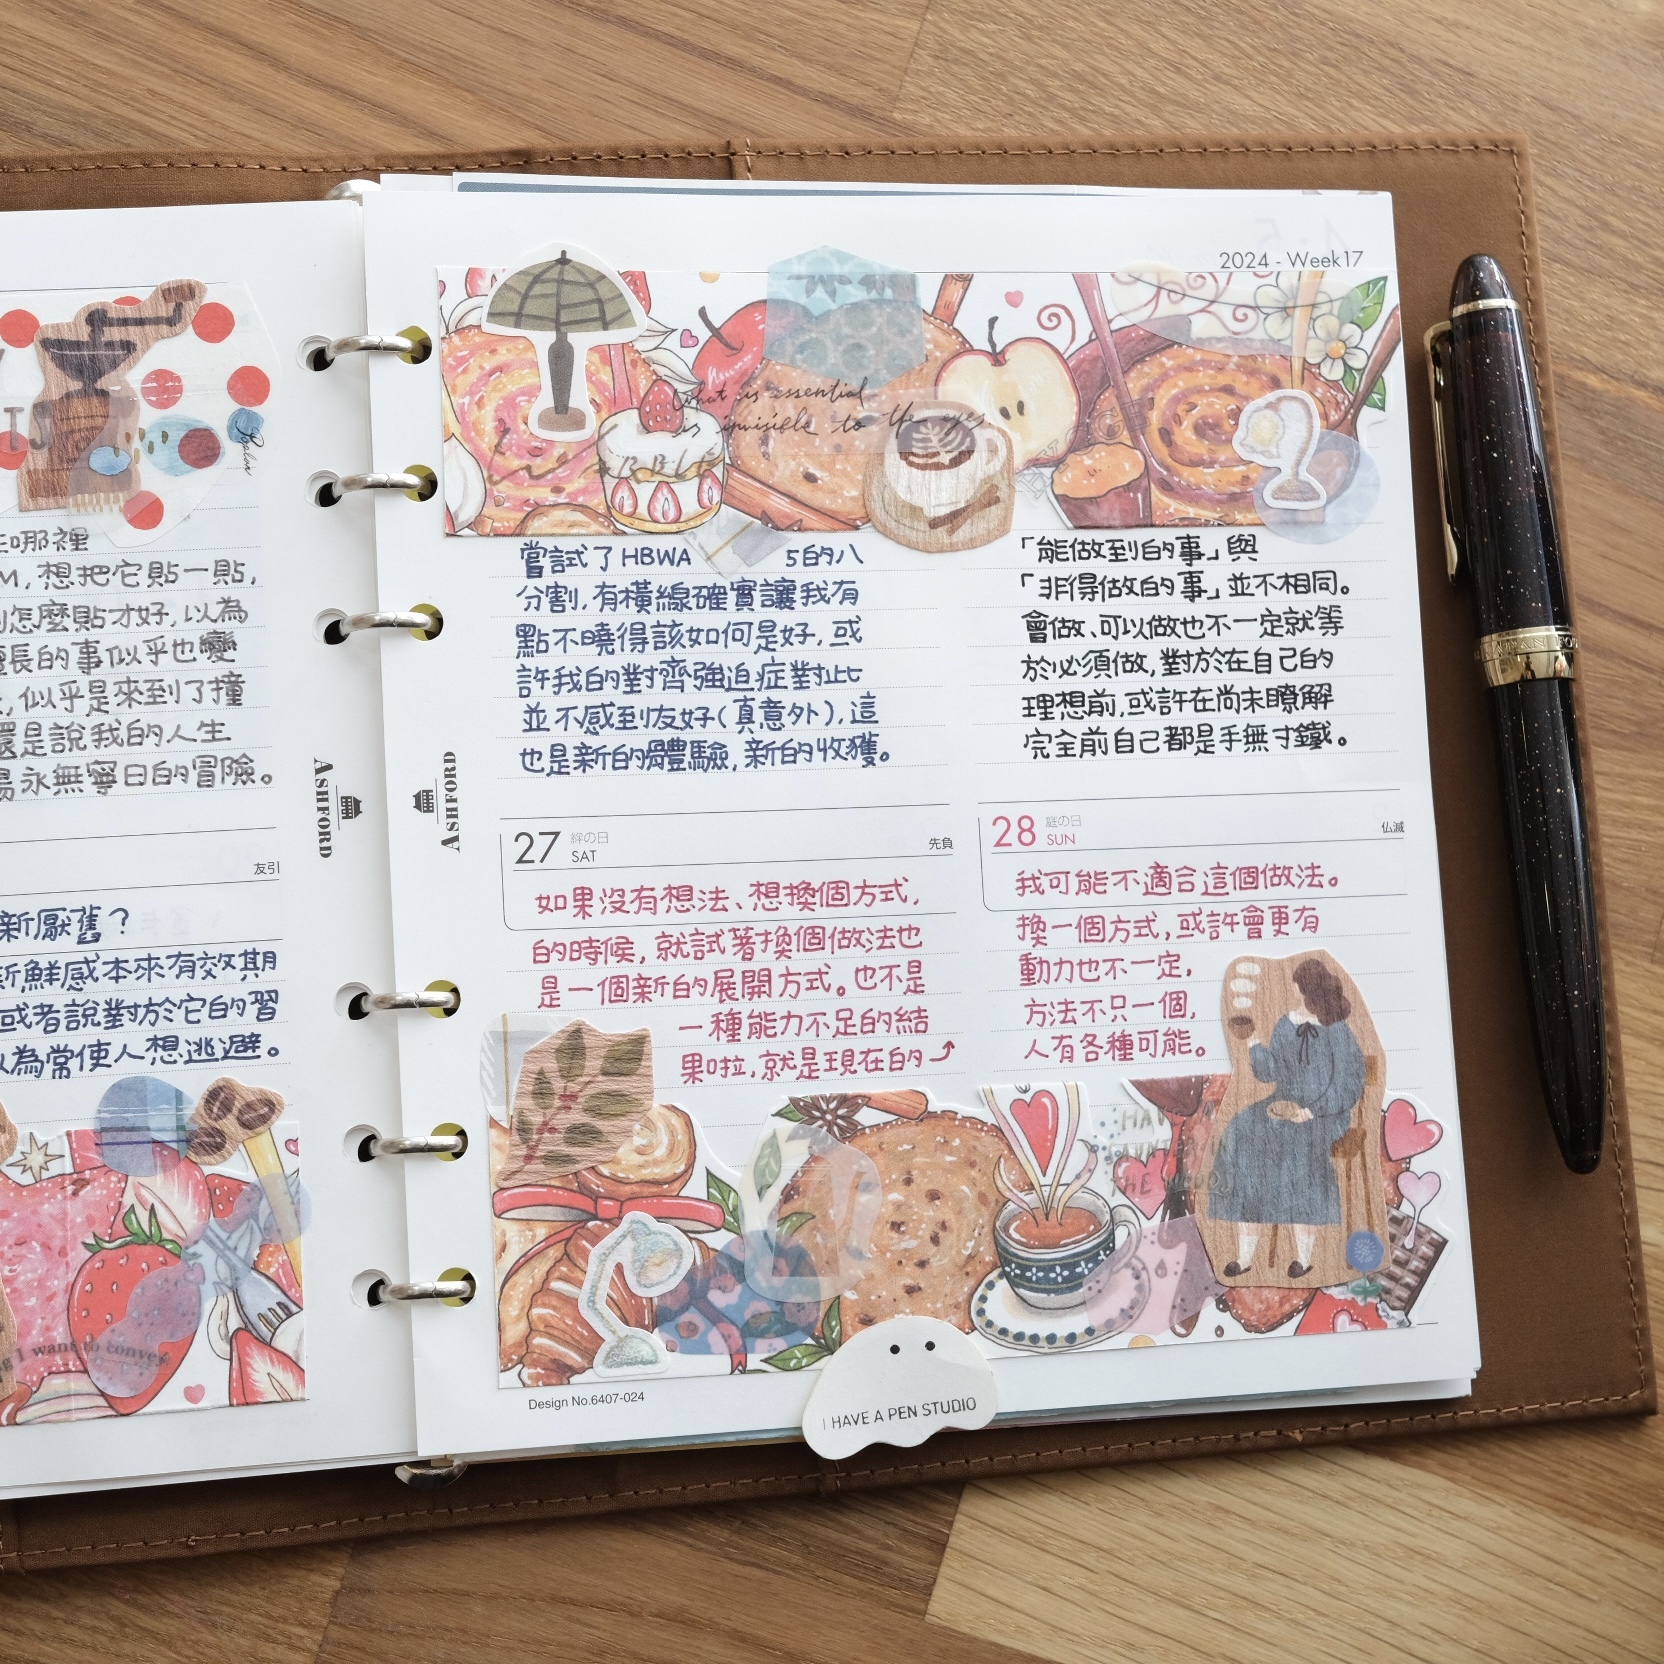 知哪裡
M, 想把它貼一貼,
怎麼貼才好, 以為
長的事似乎也變
, 似乎是來到了撞
還是說我的人生
易永無寧日的冒險。
友引
新厭舊？
新鮮感本來有效期
或者說對於它的習
以為常使人想逃避。
g I want to convey
ASHFORD
ASHFORD
2024 - Week17
What is essential
is invisible to the eyes
嘗試了HBWA 5的八
分割, 有橫線確實讓我有
點不曉得該如何是好, 或
許我的對齊強迫症對此
並不感到友好(真意外), 這
也是新的體驗, 新的收獲。
「能做到的事」與
「非得做的事」並不相同。
會做、可以做也不一定就等
於必須做, 對於在自己的
理想前, 或許在尚未瞭解
完全前自己都是手無寸鐵。
27 絆の日 SAT 先負
如果沒有想法、想換個方式,
的時候, 就試著換個做法也
是一個新的展開方式。也不是
一種能力不足的結
果啦, 就是現在的
28 庭の日 SUN 仏滅
我可能不適合這個做法。
換一個方式, 或許會更有
動力也不一定,
方法不只一個,
人有各種可能。
THE WOODS
Design No.6407-024
I HAVE A PEN STUDIO